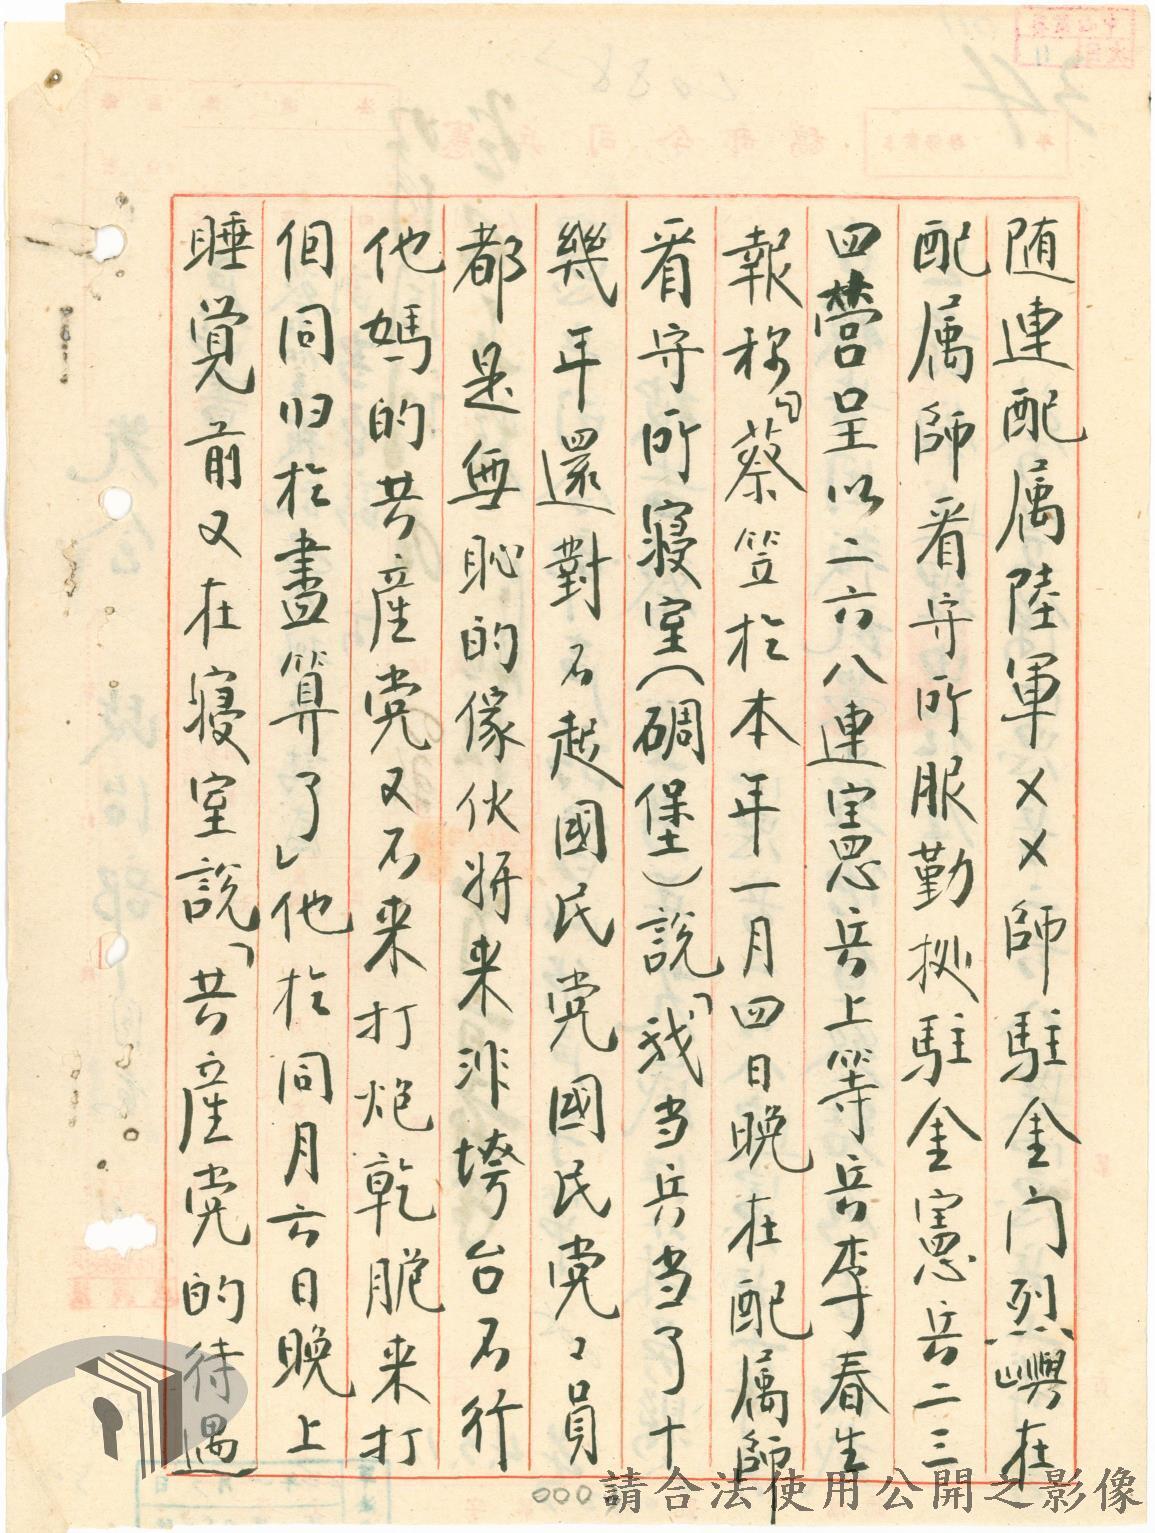 随連配属陸軍××師駐金门烈嶼在
配属師看守所服勤拠駐金憲兵二三
四營呈以二六八連憲兵上等兵李春生
報称「蔡笠於本年一月四日晚在配属師
看守所寝室(碉堡)說「我当兵当了十
幾年還對不起國民党國民党々員
都是無恥的傢伙将来非垮台不行
他媽的共産党又不来打炮乾脆来打
個同归於盡算了」他於同月六日晚上
睡覚前又在寝室說「共産党的待遇
請合法使用公開之影像